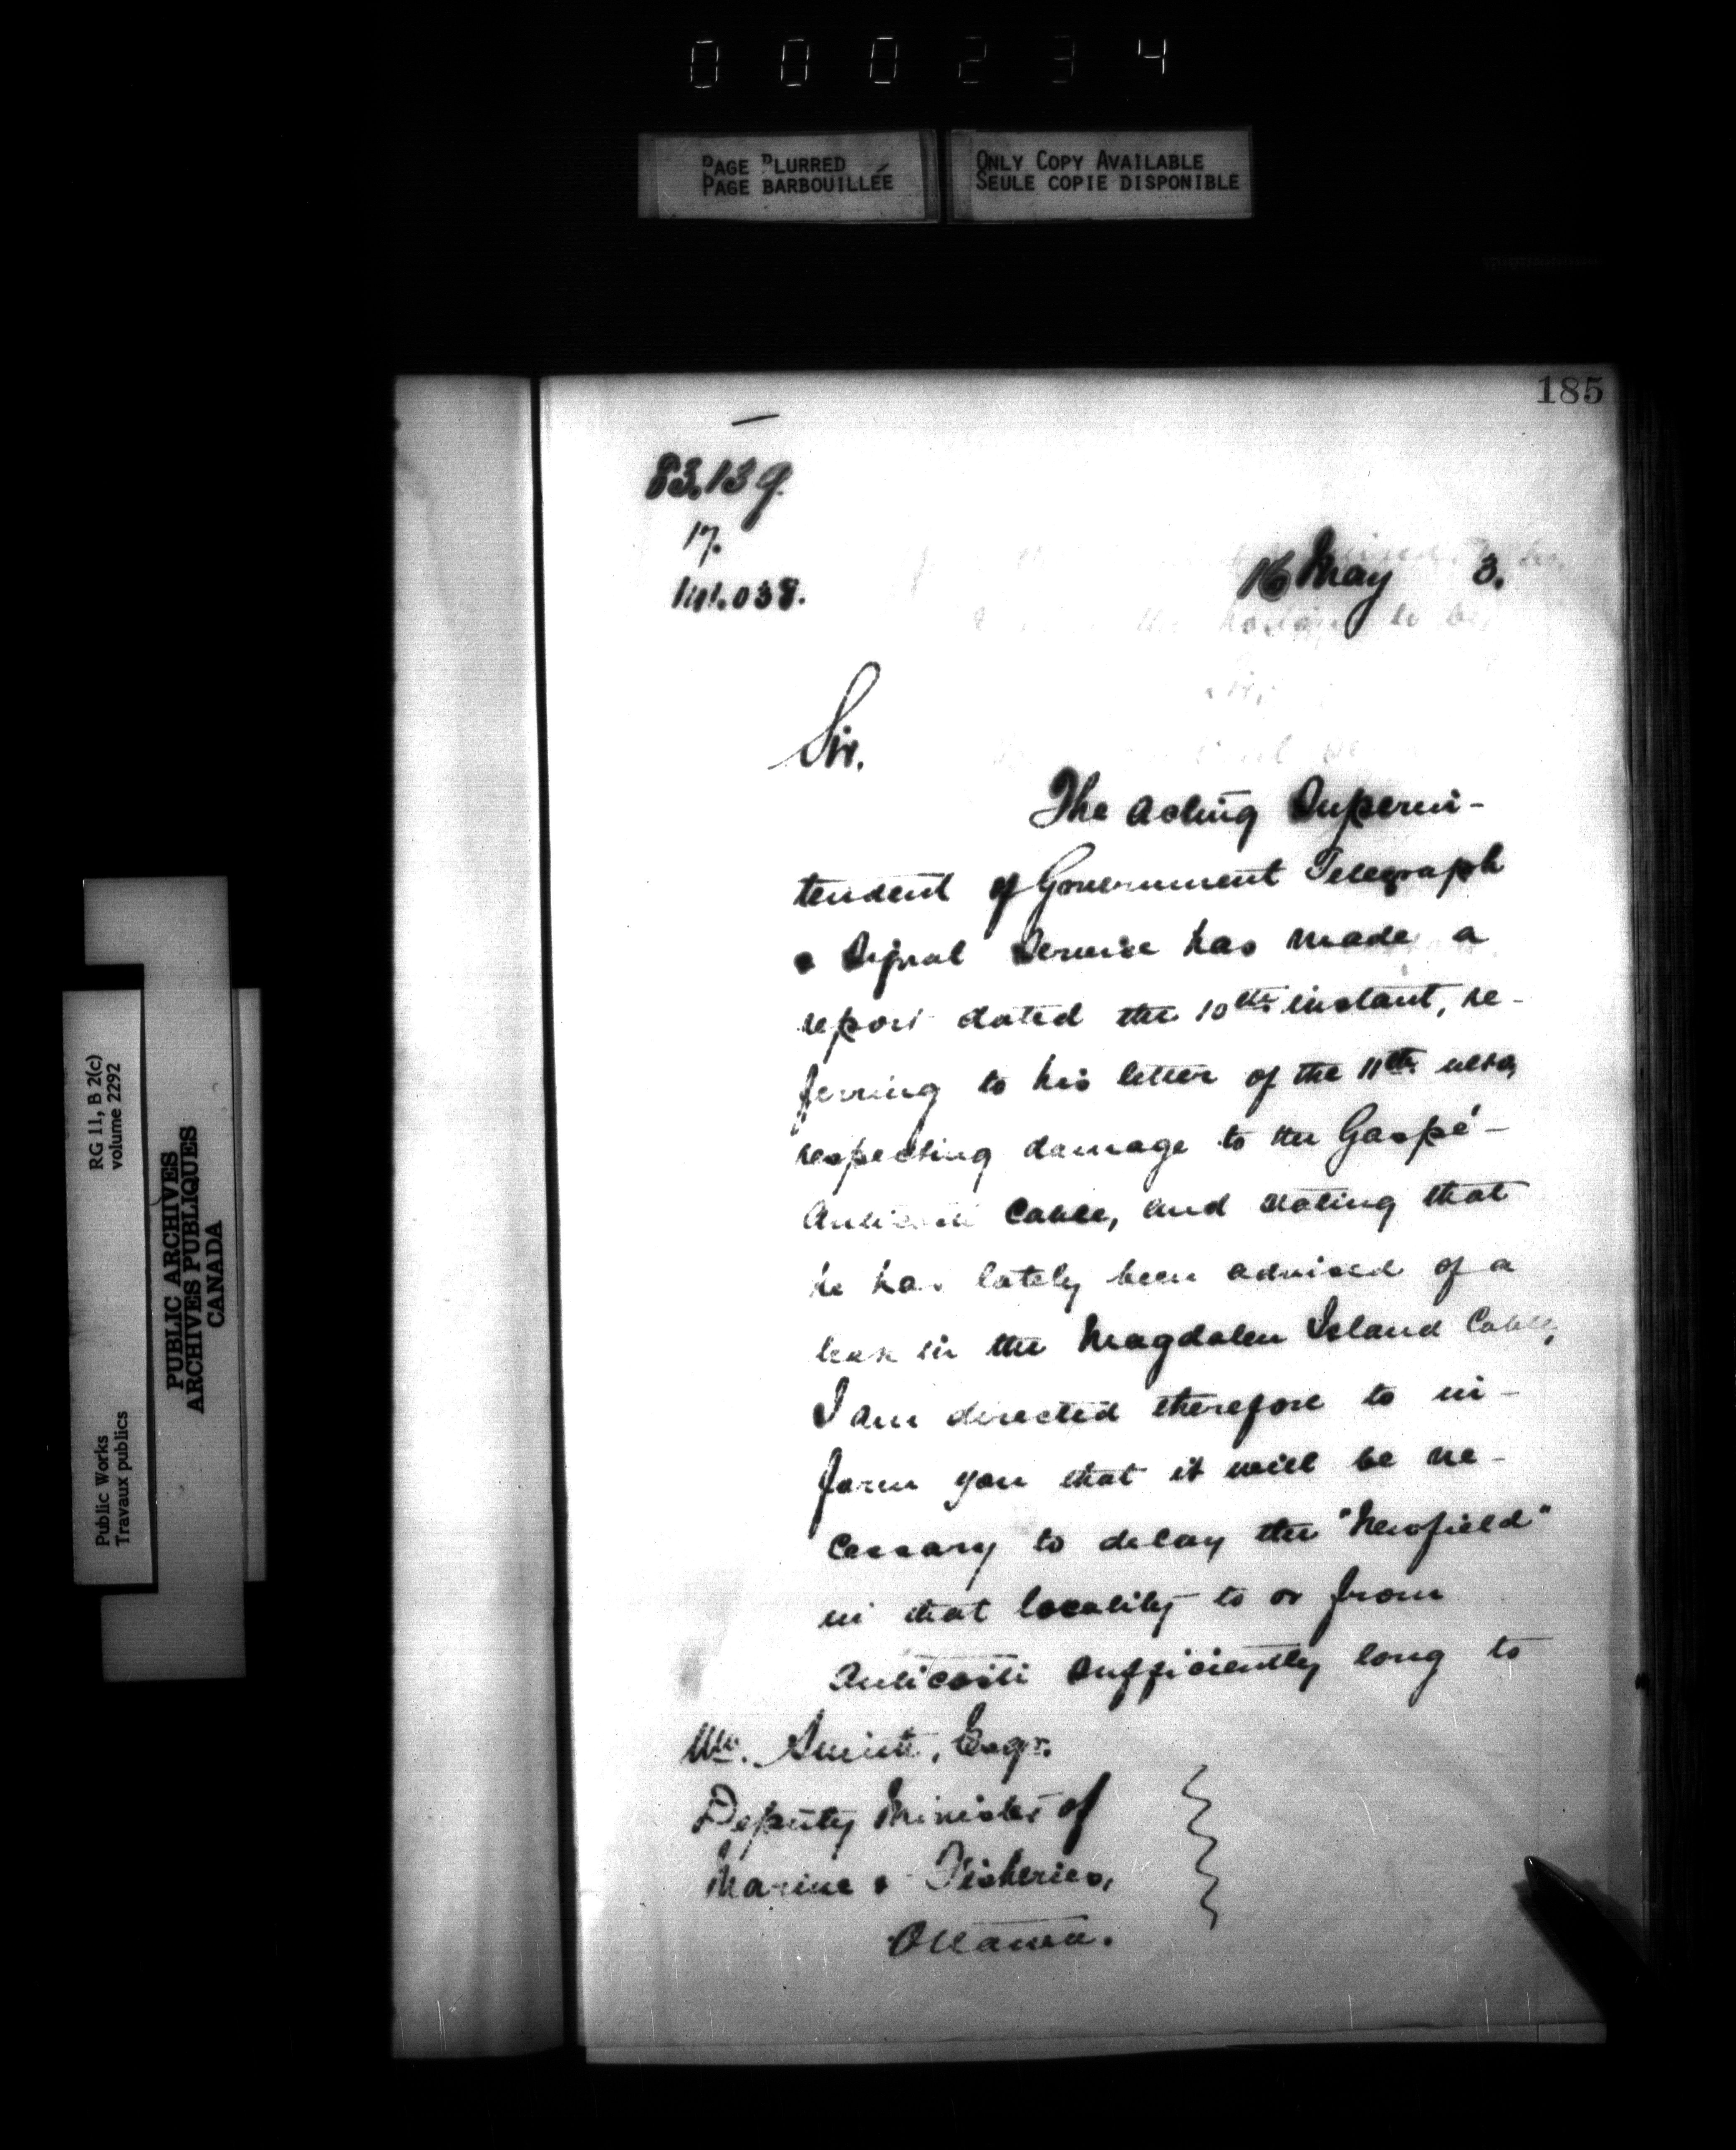 000234
PAGE BLURRED
PAGE BARBOUILLÉE
ONLY COPY AVAILABLE
SEULE COPIE DISPONIBLE
185
83.139.
17.
141.038.
16 May 3.
Sir.
The Acting Superin-
tendent of Government Telegraph
& Signal Service has made a
report dated the 10th instant, re-
ferring to his letter of the 11th ulto,
respecting damage to the Gaspé-
Anticosti Cable, and stating that
he has lately been advised of a
leak in the Magdalen Island Cable,
I am directed therefore to in-
form you that it will be ne-
cessary to delay the "Newfield"
in that locality to or from
Anticosti sufficiently long to
Wm. Smith, Esqr.
Deputy Minister of
Marine & Fisheries,
Ottawa.
RG 11, B 2(c)
volume 2292
PUBLIC ARCHIVES
ARCHIVES PUBLIQUES
CANADA
Public Works
Travaux publics